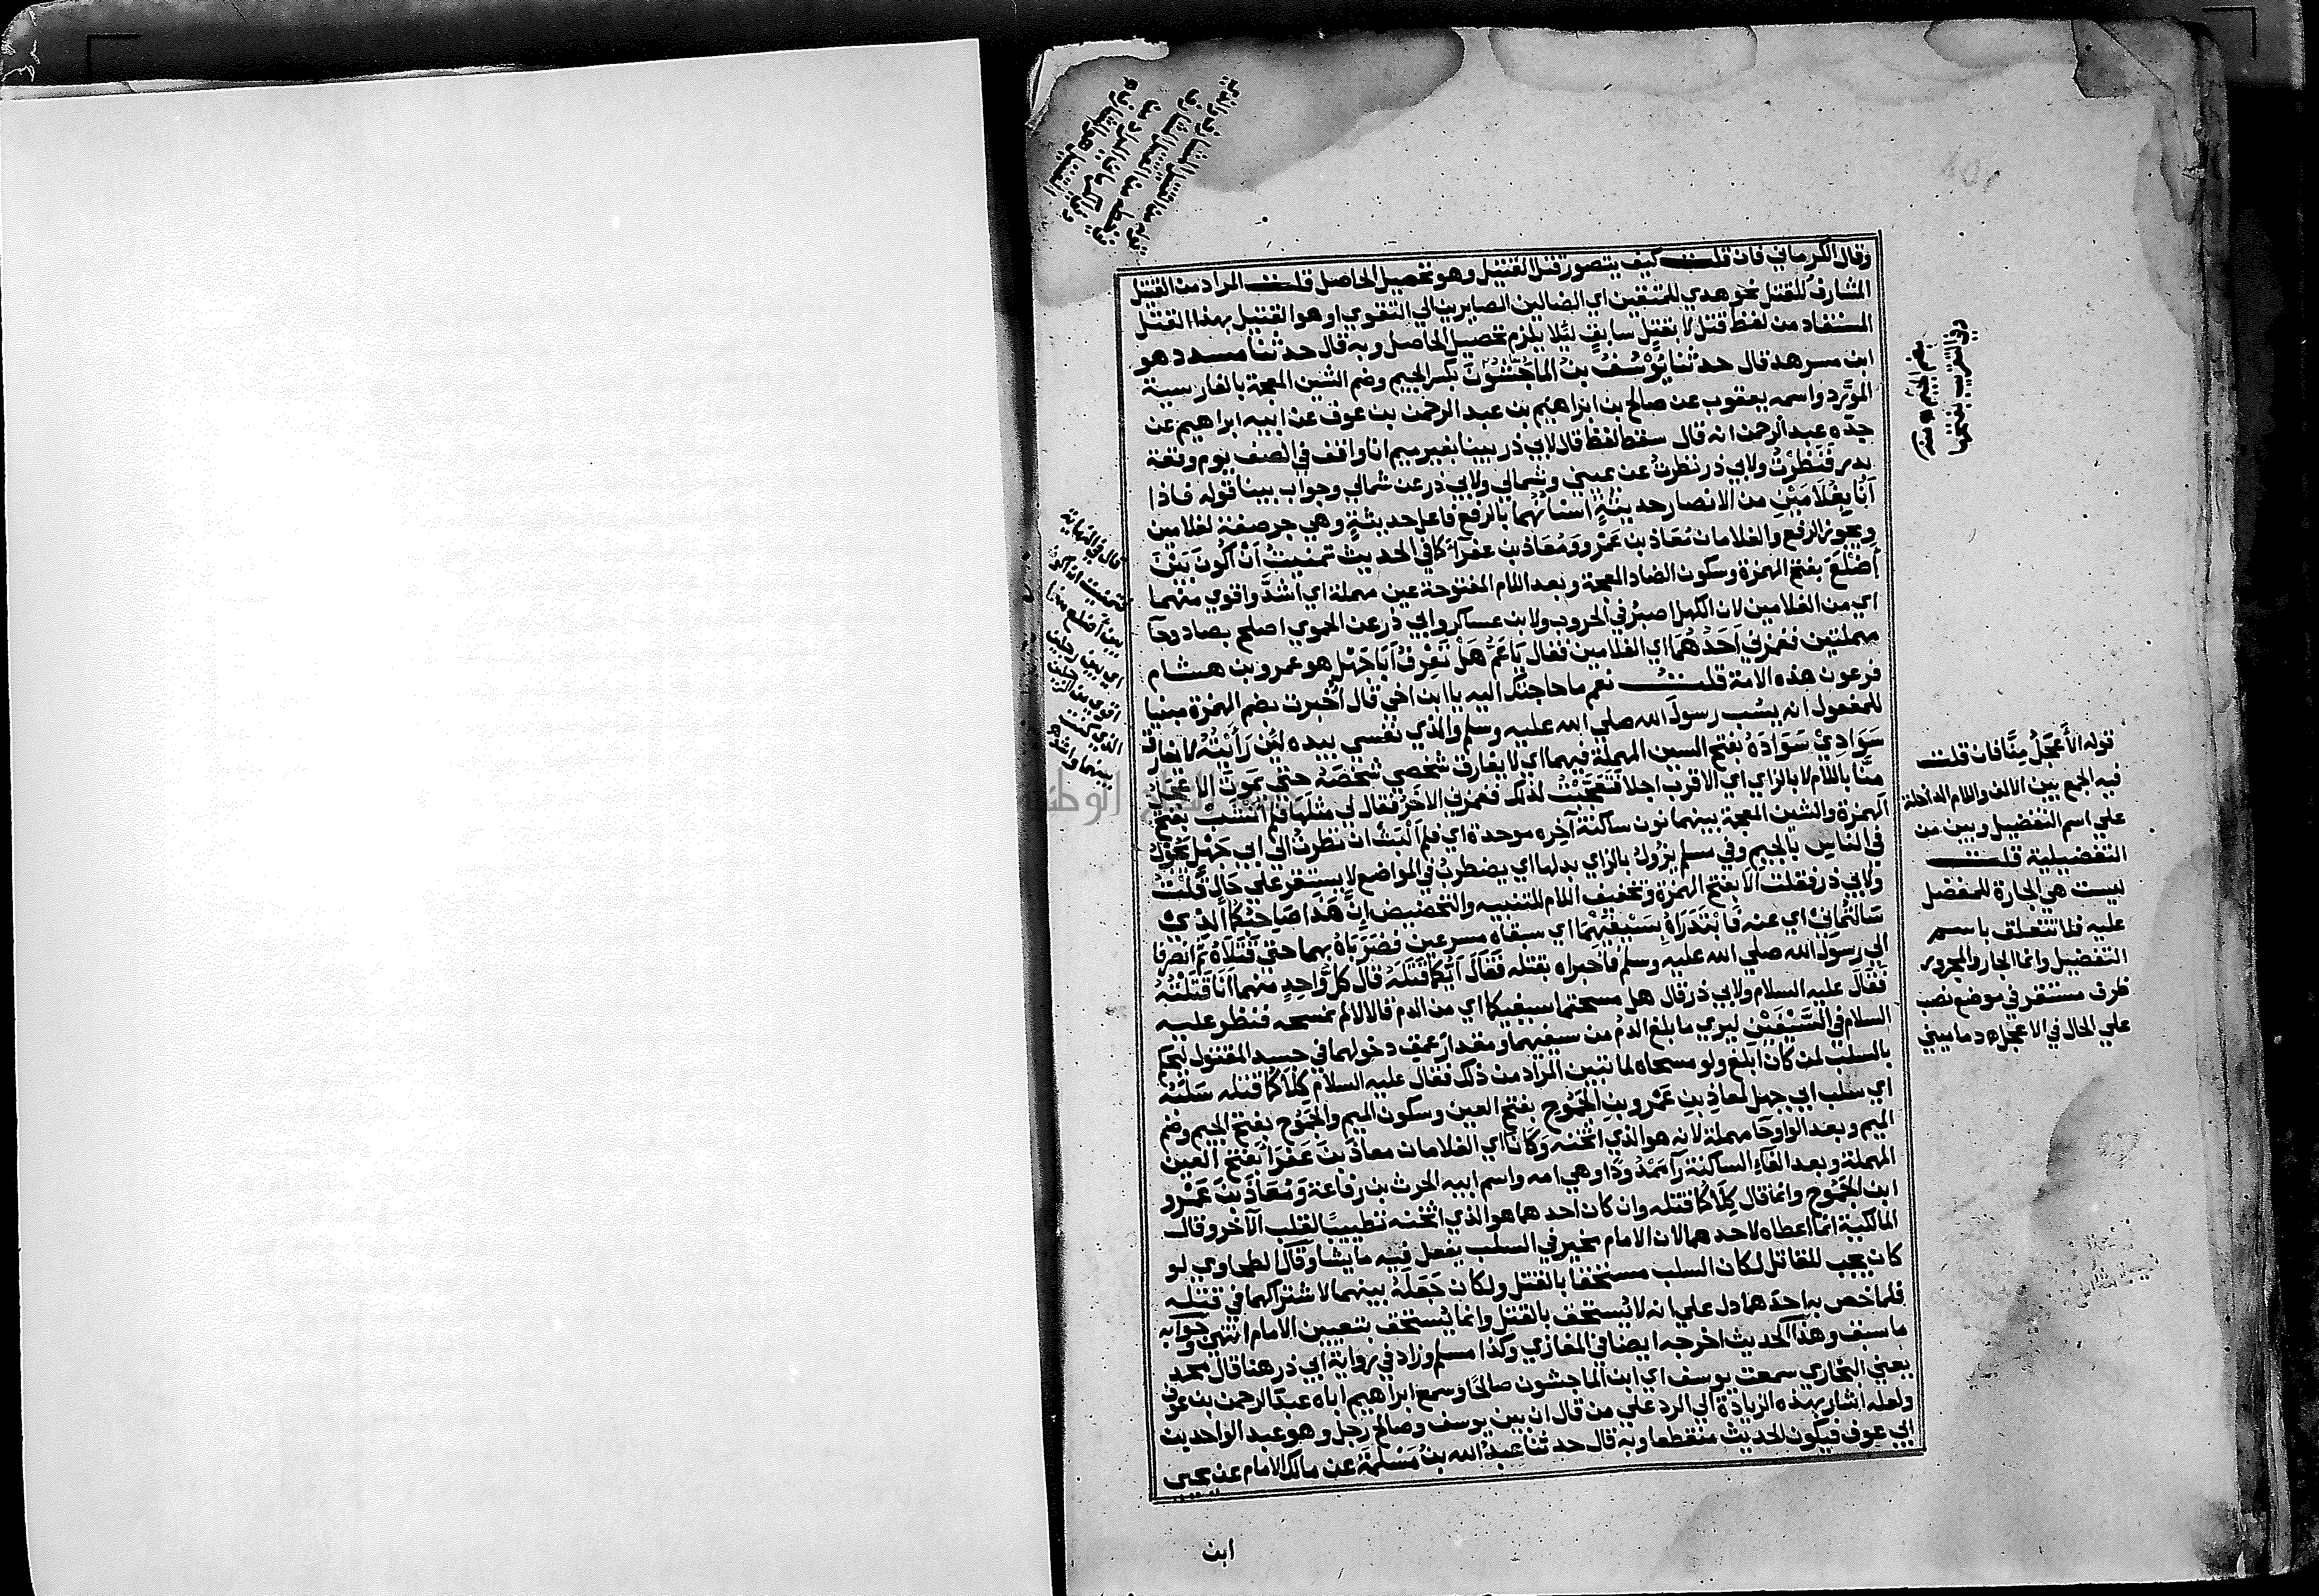 وقال الكرماني فان قلت كيف يتصور قتل القتيل وهو تحصيل الحاصل قلت المراد من القتيل
المشارف للقتل نحو هدي للمتقين اي الضالين الصايرين الي التقوي او هو القتيل بهذا القتل
المستفاد من لفظ قتل لا بقتل سابق ليلا يلزم تحصيل الحاصل وبه قال حدثنا مسدد هو
ابن مسرهد قال حدثنا يُوسُفُ بنُ المَاجِشُونَ بكسر الجيم وضم الشين المعجمة بالفارسية
المورد واسمه يعقوب عن صالح بن ابراهيم بن عبد الرحمن بن عوف عن ابيه ابراهيم عن
جده عبد الرحمن انه قال سقط لفظ قال لابي ذر بينا بغير ميم انا واقف في الصف يوم وقعة
بدر فنظرتُ ولابي ذر نظرت عن يميني وشمالي ولابي ذر عن شمالي وجواب بينا قوله فاذا
أَنَا بِغُلَامَيْنِ من الانصار حديثةٍ اسنانهما بالرفع فاعل حديثةٍ وهي جر صفة لغلامين
ويجوز الرفع والغلامان مُعَاذ بن عَمْرو ومُعَاذ بن عفراء كما في الحديث تمنيتُ أَنْ أَكُونَ بَيْنَ
أَضْلَعَ بفتح الهمزة وسكون الضاد المعجمة وبعد اللام المفتوحة عين مهملة اي اشدَّ واقوي منهما
اي من الغلامين لان الكهل اصبرُ في الحروب ولابن عساكر وابي ذر عن الحموي اصلح بصاد وحآ
مهملتين فغمزني أَحَدُهُمَا اي الغلامين فقال يَاعَمُّ هَلْ تَعْرِفُ أَبَا جَهْلٍ هو عمرو بن هشام
فرعون هذه الامة قلت نعم ما حاجتك اليه يا ابن اخي قال أُخْبِرت بضم الهمزة مبنيا
للمفعول انه يسُب رسولَ الله صلي الله عليه وسلم والذي نفسي بيده لئن رَأَيْتُهُ لا يفارق
سَوَادِيْ سَوَادَهُ بفتح السين المهملة فيهما اي لا يفارق شخصي شخصَهُ حتي يموت الاعجلُ
منَّا باللام لا بالزاي اي الاقرب اجلا فتعجَّبْتُ لذلك فغمزني الاخرُ فقال لي مثلَها فلم انشب بفتح
الهمزة والشين المعجمة بينهما نون ساكنة آخره موحدة اي فلم ألبث أن نظرتُ الي ابي جهل يجول
في الناس بالجيم وفي مسلم يزُول بالزاي بدلها اي يضطربُ في المواضع لا يستقر علي حال قُلْتُ
ولابي ذر فقلت الا بفتح الهمزة وتخفيف اللام للتنبيه والتحضيض إِنَّ هَذَا صَاحِبُكُمَا الذي
سَالتُمَانِي اي عنه فَابْتَدَرَاهُ بِسَيْفَيْهِمَا اي سبقاه مسرعين فَضَرَبَاهُ بهما حتي قَتَلَاهُ ثم انصرفا
الي رسول الله صلي الله عليه وسلم فأخبراه بقتله فقالَ أَيُّكُمَا قَتَلَهُ قال كلُّ وَاحِدٍ منهما أَنَا قَتَلْتُهُ
فقال عليه السلام ولابي ذر قال هل مسحتما سيفيكما اي من الدم قالا لا لم نمسحه فنظر عليه
السلام في السَّيْفَيْنِ ليري ما بلغ الدمُ من سيفيهما ومقدار عمق دخولهما في جسد المقتول ليحكم
بالسلب لمن كان ابلغ ولو مسحاه لما تبين المراد من ذلك فقال عليه السلام كِلَاكُمَا قتله سَلَبُهُ
اي سلب ابي جهل لمعاذِ بنِ عَمْرِو بنِ الجَمُوح بفتح العين وسكون الميم والجَمُوح بفتح الجيم وضم
الميم وبعد الواو حآ مهملة لانه هو الذي اثخنه وَكَانَا اي الغلامان معاذَ بنَ عَفْرَا بفتح العين
المهملة وبعد الفآء الساكنة رآ ممدُودًا وهي امه واسم ابيه الحرث بن رفاعة وَمُعَاذَ بنَ عَمْرِو
ابن الجَمُوح وانما قال كِلَاكُمَا قتله وان كان احدهما هو الذي اثخنه تطييبًا لقلب الآخر وقال
المالكية انما اعطاه لاحدهما لان الامام مخير في السلب يفعل فيه ما يشا وقال الطحاوي لو
كان يجب للقاتل لكان السلب مستحقا بالقتل ولكان جَعَلَهُ بينهما لاشتراكهما في قتله
فلما خص به احدهما دل علي انه لا يُستحق بالقتل وانما يُستحق بتعيين الامام انتهي وجوابه
ما سبق وهذا الحديث اخرجه ايضا في المغازي وكذا مسلم وزاد في رواية ابي ذر هنا قال محمد
يعني البخاري سمعت يوسف اي ابن الماجشون صالحًا وسمع ابراهيم اباه عبد الرحمن بن عوف
ولعله اشار بهذه الزيادة الي الرد علي من قال ان بين يوسف وصالح رجل وهو عبد الواحد بن
ابي عوف فيكون الحديث منقطعا وبه قال حدثنا عَبْدُ الله بنُ مَسْلَمَةَ عن مالك الامام عن يحيي
ابن
وفي التقريب بفتحها
قوله الأعْجَلُ مِنَّا فان قلت
فيه الجمع بين الالف واللام الداخلة
علي اسم التفضيل وبين من
التفضيلية قلت
ليست هي الجارة للمفضل
عليه فلا تتعلق باسم
التفضيل وانما الجار والمجرور
ظرف مستقر في موضع نصب
علي الحال في الاعجل دماميني
قال في النهاية
تمنيت ان اكون
بين أضلع منهما
اي بين رجلين
اقوي من الرجلين
الذي كنت
بينهما واشد